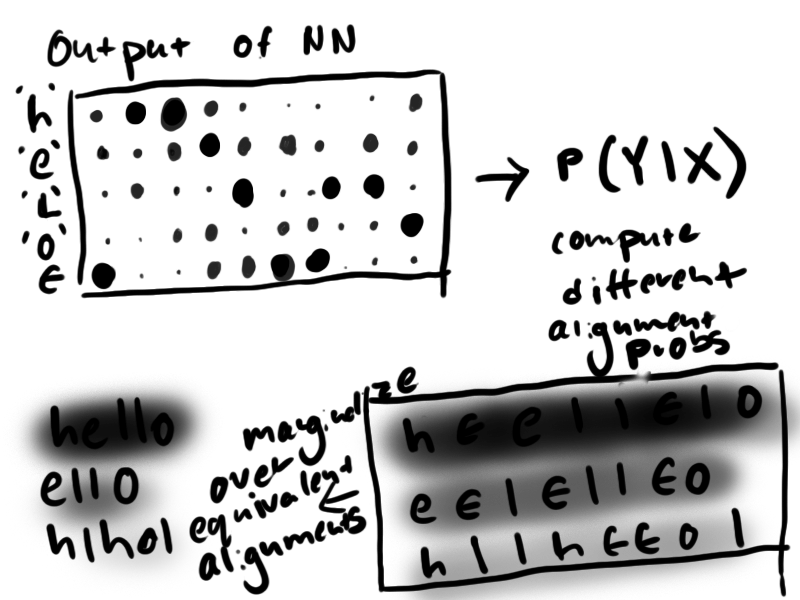 Output of NN
"h"
'e'
'L'
'o'
ϵ
→ P(Y|X)
compute
different
alignment
probs
h ϵ e l l ϵ l o
e ϵ l ϵ l l ϵ o
h l l h ϵ ϵ o l
marginalize
over
equivalent
alignments
hello
ello
hlhol